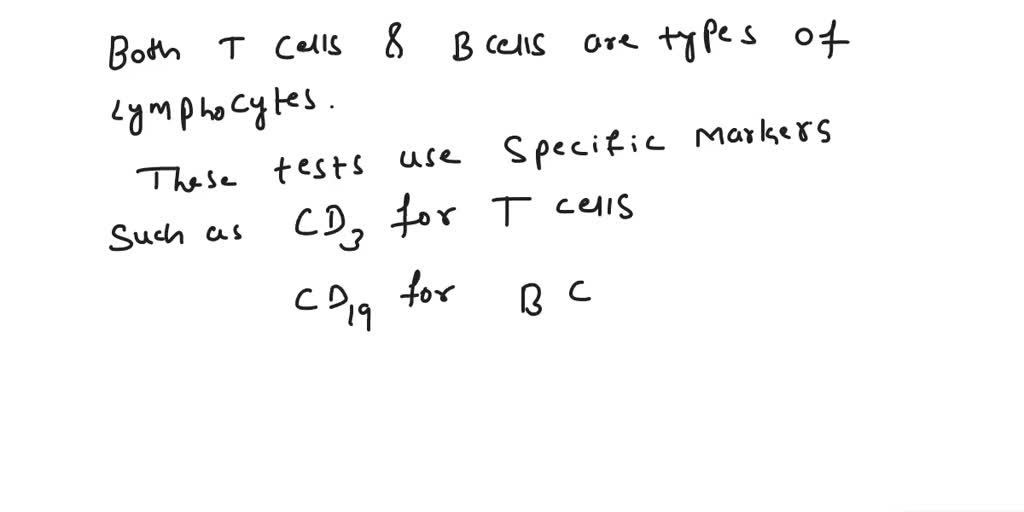 Both T Cells & B cells are types of
Lymphocytes.
These tests use Specific Markers
Such as CD3 for T cells
CD19 for B C